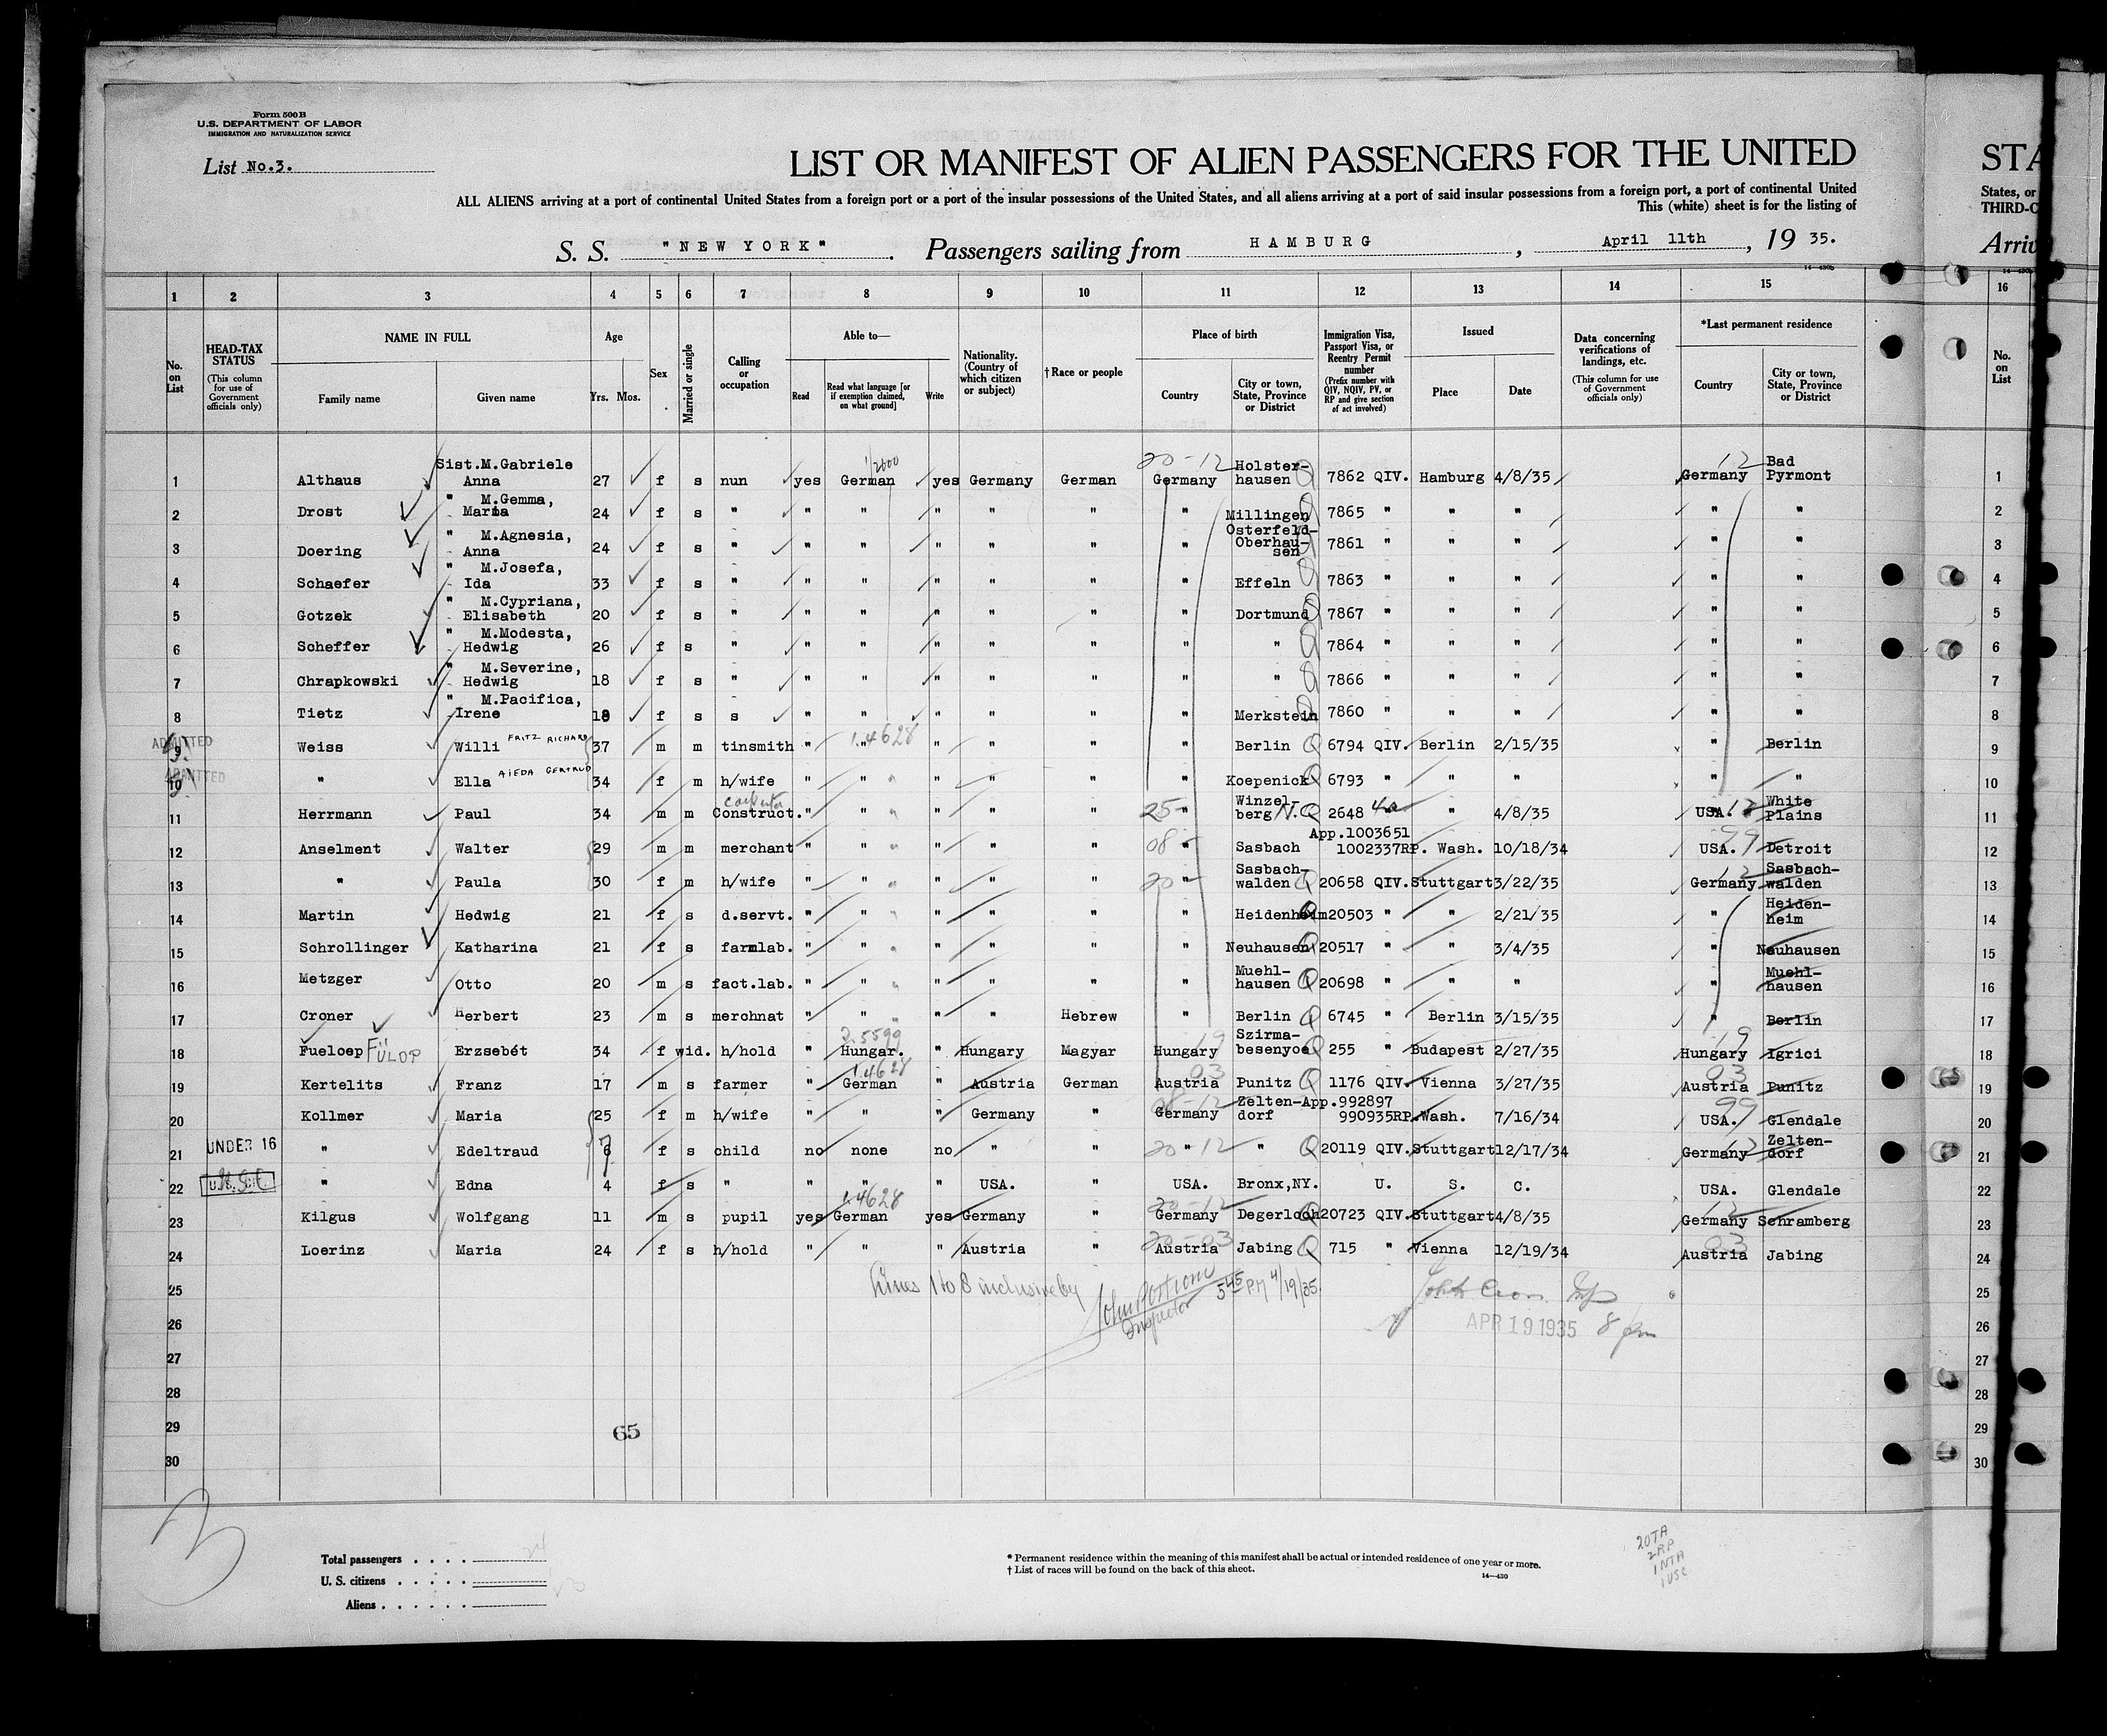 Form 500B
U.S. DEPARTMENT OF LABOR
IMMIGRATION AND NATURALIZATION SERVICE
List No.3.
LIST OR MANIFEST OF ALIEN PASSENGERS FOR THE UNITED STA
ALL ALIENS arriving at a port of continental United States from a foreign port or a port of the insular possessions of the United States, and all aliens arriving at a port of said insular possessions from a foreign port, a port of continental United States, or
This (white) sheet is for the listing of THIRD-C
S. S. "NEW YORK". Passengers sailing from HAMBURG, April 11th, 19 35. Arriv
14-430b
1 2 3 4 5 6 7 8 9 10 11 12 13 14 15 16
No. on List
HEAD-TAX STATUS (This column for use of Government officials only)
NAME IN FULL Family name Given name
Age Yrs. Mos.
Sex
Married or single
Calling or occupation
Able to— Read Read what language [or if exemption claimed, on what ground] Write
Nationality. (Country of which citizen or subject)
†Race or people
Place of birth Country City or town, State, Province or District
Immigration Visa, Passport Visa, or Reentry Permit number (Prefix number with QIV, NQIV, PV, or RP and give section of act involved)
Issued Place Date
Data concerning verifications of landings, etc. (This column for use of Government officials only)
*Last permanent residence Country City or town, State, Province or District
No. on List
1 Althaus Sist.M.Gabriele Anna 27 f s nun yes German yes Germany German 20-12 Germany Holster-hausen 7862 QIV. Hamburg 4/8/35 12 Germany Bad Pyrmont 1
2 Drost " M.Gemma, Maria 24 f s " " " " " " " Millingen 7865 " " " " " 2
3 Doering " M.Agnesia, Anna 24 f s " " " " " " " Osterfeld-Oberhau-sen 7861 " " " " " 3
4 Schaefer " M.Josefa, Ida 33 f s " " " " " " " Effeln 7863 " " " " " 4
5 Gotzek " M.Cypriana, Elisabeth 20 f s " " " " " " " Dortmund 7867 " " " " " 5
6 Scheffer " M.Modesta, Hedwig 26 f s " " " " " " " " 7864 " " " " " 6
7 Chrapkowski " M.Severine, Hedwig 18 f s " " " " " " " " 7866 " " " " " 7
8 Tietz " M.Pacifica, Irene f s s " " " " " " Merkstein 7860 " " " " " 8
ADMITTED 9 Weiss Willi FRITZ RICHARD 37 m m tinsmith " " " " " " Berlin 6794 QIV. Berlin 2/15/35 " Berlin 9
ADMITTED 10 " Ella AIEDA GERTRUD 34 f m h/wife " " " " " " Koepenick 6793 " " " " " 10
11 Herrmann Paul 34 m m carpenter Construct. " " " " " 25- " Winzel-berg N. 2648 " 4/8/35 USA. White Plains 11
12 Anselment Walter 29 m m merchant " " " " " 08 " Sasbach App.1003651 1002337RP. Wash. 10/18/34 USA. 99 Detroit 12
13 " Paula 30 f m h/wife " " " " " 20 " Sasbach-walden 20658 QIV. Stuttgart 3/22/35 Germany Sasbach-walden 13
14 Martin Hedwig 21 f s d.servt. " " " " " " Heidenheim 20503 " " 2/21/35 " Heiden-heim 14
15 Schrollinger Katharina 21 f s farmlab. " " " " " " Neuhausen 20517 " " 3/4/35 Neuhausen 15
16 Metzger Otto 20 m s fact.lab. " " " " " " Muehl-hausen 20698 " " " Muehl-hausen 16
17 Croner Herbert 23 m s merchnat " " " " Hebrew " Berlin 6745 " Berlin 3/15/35 " Berlin 17
18 Fueloep FÜLOP Erzsebét 34 f wid. h/hold " 2.5599 Hungar. " Hungary Magyar Hungary 19 Szirma-besenyoe 255 " Budapest 2/27/35 Hungary 19 Igrici 18
19 Kertelits Franz 17 m s farmer " 1.4628 German " Austria German Austria 03 Punitz 1176 QIV. Vienna 3/27/35 Austria 03 Punitz 19
20 Kollmer Maria 25 f m h/wife " " " Germany " Germany Zelten-dorf App.992897 990935RP. Wash. 7/16/34 USA. 99 Glendale 20
UNDER 16 21 " Edeltraud 7 f s child no none no " 20 " 12 " 20119 QIV. Stuttgart 12/17/34 Germany Zelten-dorf 21
U.S.C. 22 " Edna 4 f s " " " " USA. " USA. Bronx,NY. U. S. C. USA. Glendale 22
23 Kilgus Wolfgang 11 m s pupil yes 1.4628 German yes Germany " 20-12 Germany Degerloch 20723 QIV. Stuttgart 4/8/35 Germany Schramberg 23
24 Loerinz Maria 24 f s h/hold " " " Austria " 20-03 Austria Jabing 715 " Vienna 12/19/34 Austria 03 Jabing 24
25 Lines 1 to 8 inclusive by 5 45 PM 4/19/35 25
26 Inspector APR 19 1935 8 pm 26
27 27
28 28
29 65 29
30 30
3
Total passengers . . . . 24
U. S. citizens . . . . .
Aliens . . . . . .
* Permanent residence within the meaning of this manifest shall be actual or intended residence of one year or more.
† List of races will be found on the back of this sheet.
14-430
20TA
2RP
1NTA
1USC